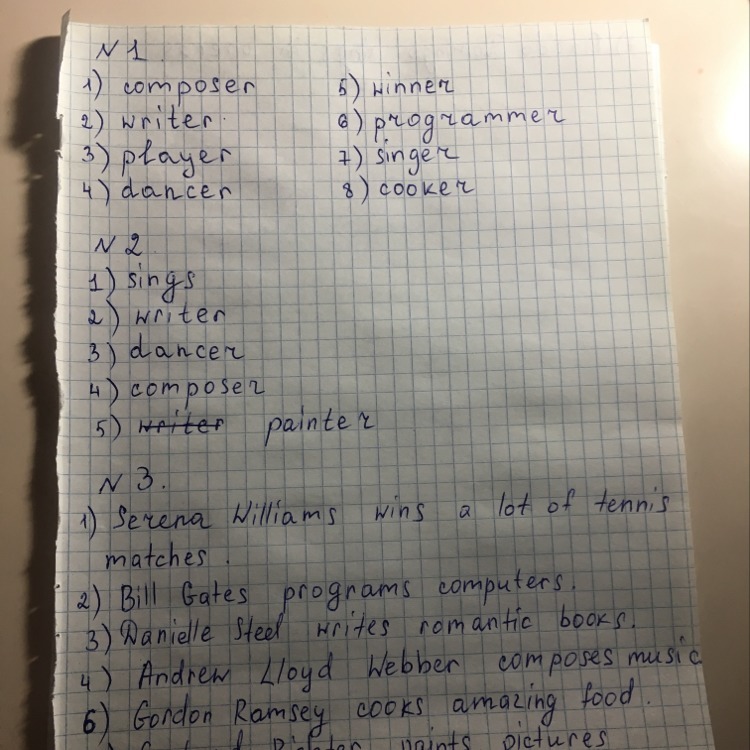 N 1.
1) composer 5) winner
2) writer 6) programmer
3) player 7) singer
4) dancer 8) cooker
N 2.
1) sings
2) writer
3) dancer
4) composer
5) writer painter
N 3.
1) Serena Williams wins a lot of tennis
matches.
2) Bill Gates programs computers.
3) Danielle Steel writes romantic books.
4) Andrew Lloyd Webber composes music
6) Gordon Ramsey cooks amazing food.
paints pictures